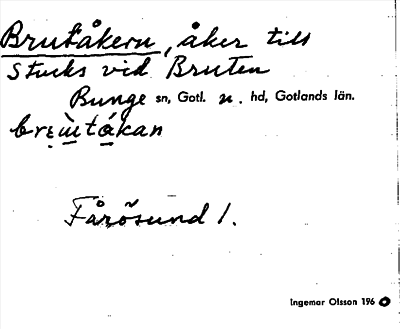 Brutåkern, åker till
Stucks vid Bruten
Bunge sn, Gotl. n. hd, Gotlands län.
Fårösund 1.
Ingemar Olsson 196